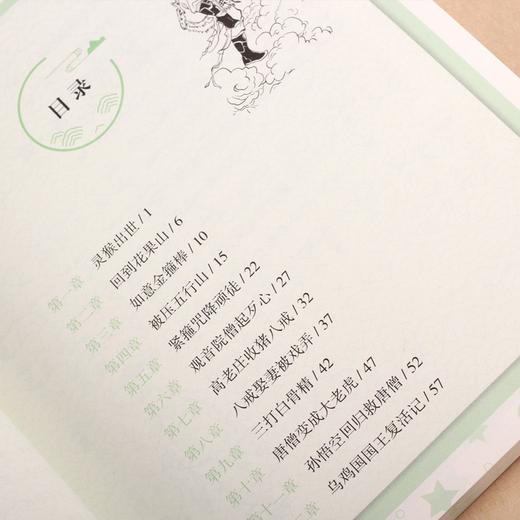 目录
第一章 灵猴出世 / 1
第二章 回到花果山 / 6
第三章 如意金箍棒 / 10
第四章 被压五行山 / 15
第五章 紧箍咒降顽徒 / 22
第六章 观音院僧起歹心 / 27
第七章 高老庄收猪八戒 / 32
第八章 八戒娶妻被戏弄 / 37
第九章 三打白骨精 / 42
第十章 唐僧变成大老虎 / 47
第十一章 孙悟空回归救唐僧 / 52
章 乌鸡国国王复活记 / 57